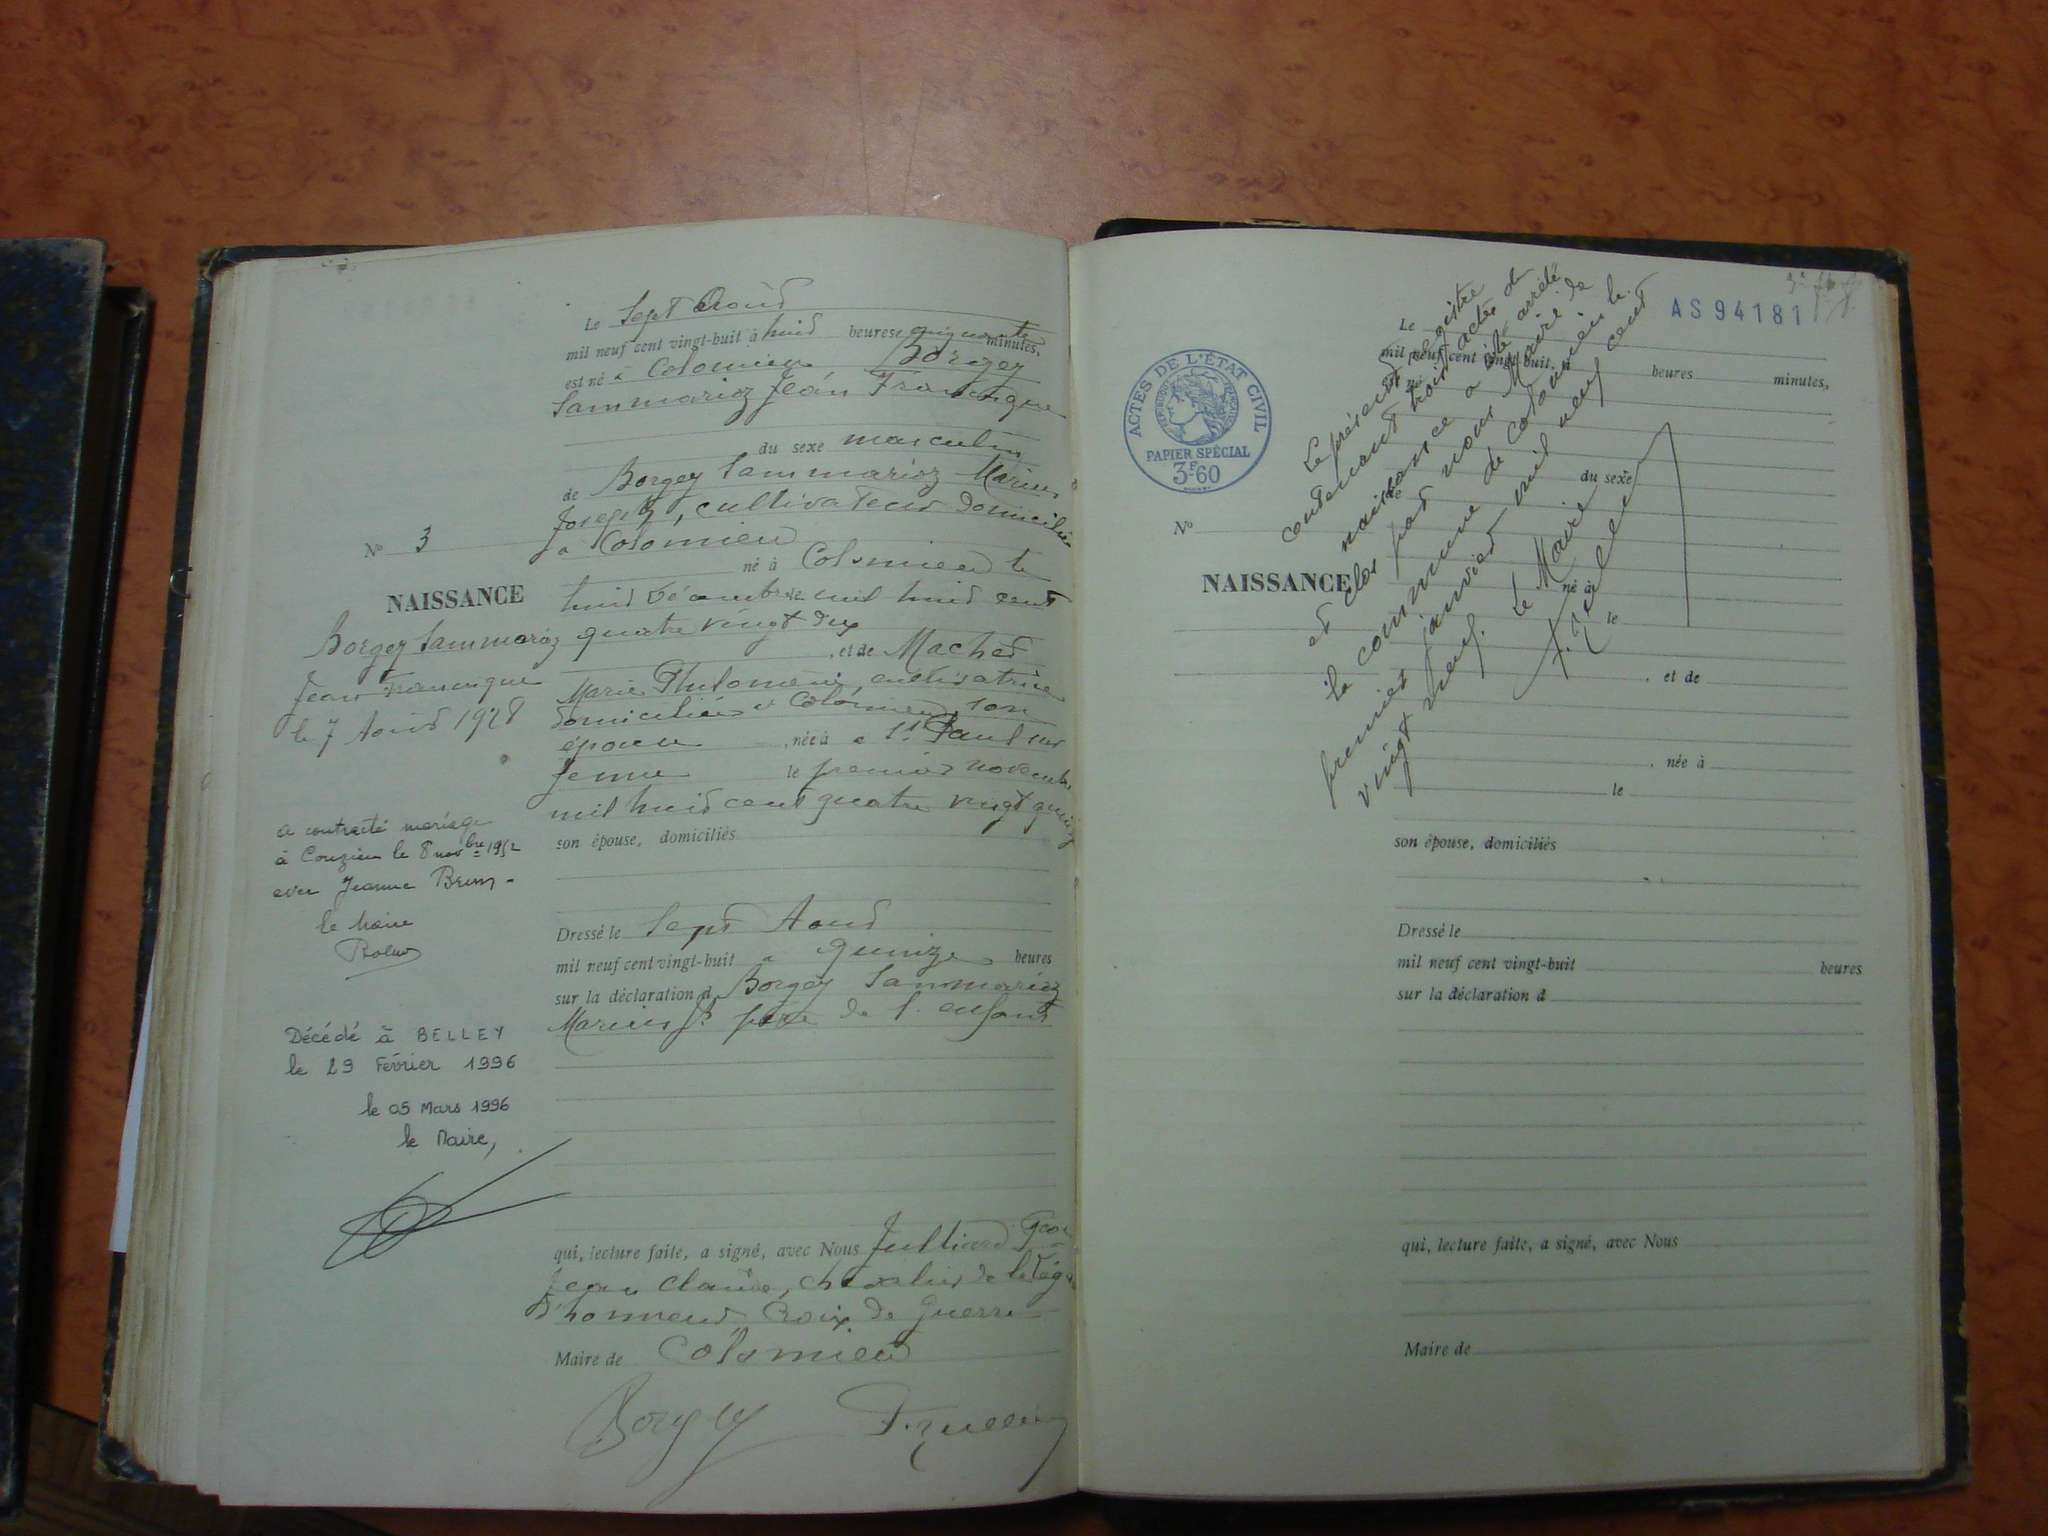 Le Sept Aoùt
mil neuf cent vingt-huit à huit heures cinquante minutes,
est né à Colomieu Borgey
Sammarioz Jean Francisque
du sexe masculin
de Borgey Sammarioz Marius
Joseph, cultivateur domicilié
à Colomieu
né à Colomieu le
huit décembre mil huit cent
quatre vingt dix
, et de Machet
Marie Philomène, cultivatrice
domiciliée à Colomieu, son
épouse , née à St Paul sur
Yenne le premier novembre
mil huit cent quatre vingt quinze
son épouse, domiciliés
Dressé le Sept Aout
mil neuf cent vingt-huit à quinze heures
sur la déclaration d Borgey Sammarioz
Marius Jh père de l'enfant
qui, lecture faite, a signé, avec Nous Julliard
Jean Claude, chevalier de la Lég
d'honneur Croix de Guerre
Maire de Colomieu
Borgey
No 3
NAISSANCE
Borgey Sammarioz
Jean Francisque
le 7 Aout 1928
a contracté mariage
à Conzieu le 8 novbre 1952
avec Jeanne Brun -
le Maire
Décédé à BELLEY
le 29 Février 1996
le 05 Mars 1996
le Maire,
AS 94181
ACTES DE L'ÉTAT CIVIL
RÉPUBLIQUE FRANÇAISE
PAPIER SPÉCIAL
3F60
Le présent registre
contenant trois actes de
naissance a été arrêté
et clos par nous Maire de
la commune de Colomieu le
premier janvier mil neuf cent
vingt neuf. Le Maire
Le
mil neuf cent vingt-huit à heures minutes,
est né
du sexe
de
No
NAISSANCE
né à
le
, et de
, née à
le
son épouse, domiciliés
Dressé le
mil neuf cent vingt-huit heures
sur la déclaration d
qui, lecture faite, a signé, avec Nous
Maire de